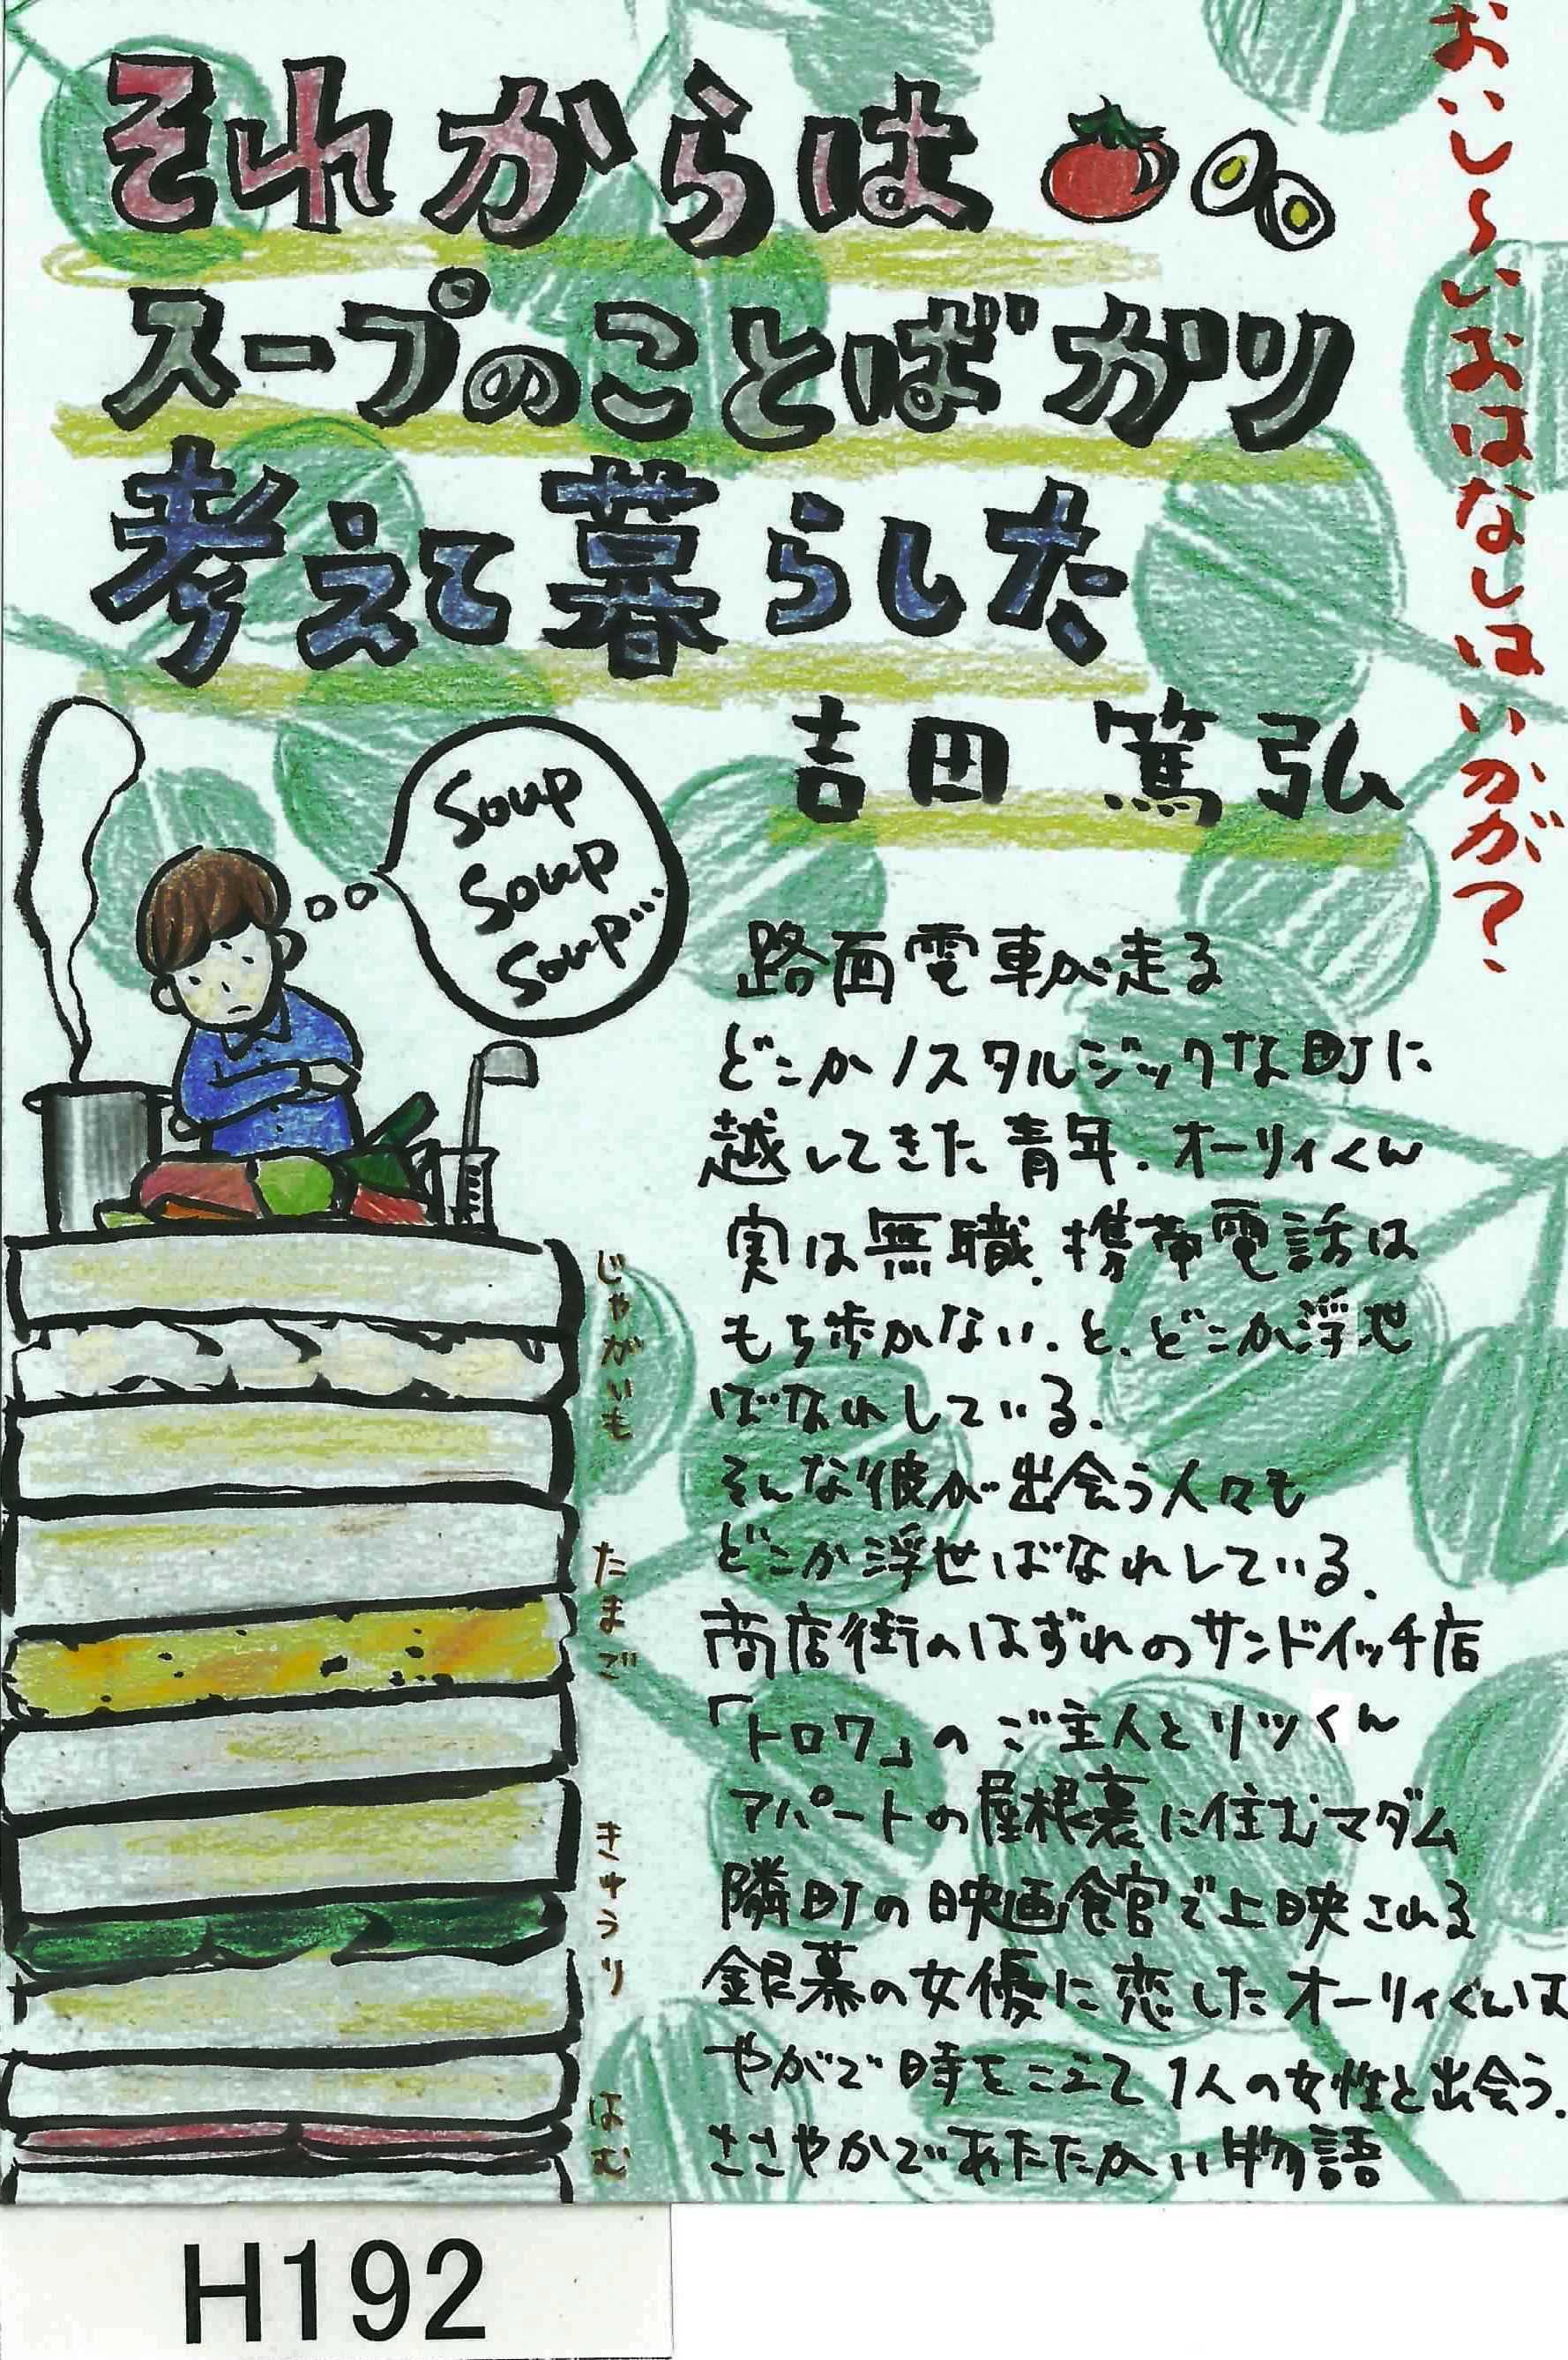 おいし〜いおはなしはいかが?
それからは
スープのことばかり
考えて暮らした
吉田 篤弘
Soup
Soup
Soup...
路面電車が走る
どこかノスタルジックな町に
越してきた青年、オーリィくん
実は無職、携帯電話は
もち歩かない、と、どこか浮世
ばなれしている。
そんな彼が出会う人々も
どこか浮世ばなれしている。
商店街のはずれのサンドイッチ店
「トロワ」のご主人とリツくん
アパートの屋根裏に住むマダム
隣町の映画館で上映される
銀幕の女優に恋したオーリィくんは
やがて時をこえて1人の女性と出会う。
ささやかであたたかい物語
じゃがいも
たまご
きゅうり
はむ
H192